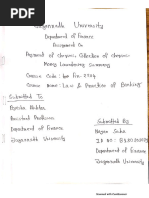 Jagannath University
Department of Finance
Assignment On
Payment of chronic Collection of chronic
Money Laundering Summary
Course Code :
Course Name : Law & Practice of Banking
Submitted To
Assistant Professor
Department of Finance
Jagannath University
Submitted By
Saha
ID NO :
Department of Finance
Jagannath University
Scanned with CamScanner